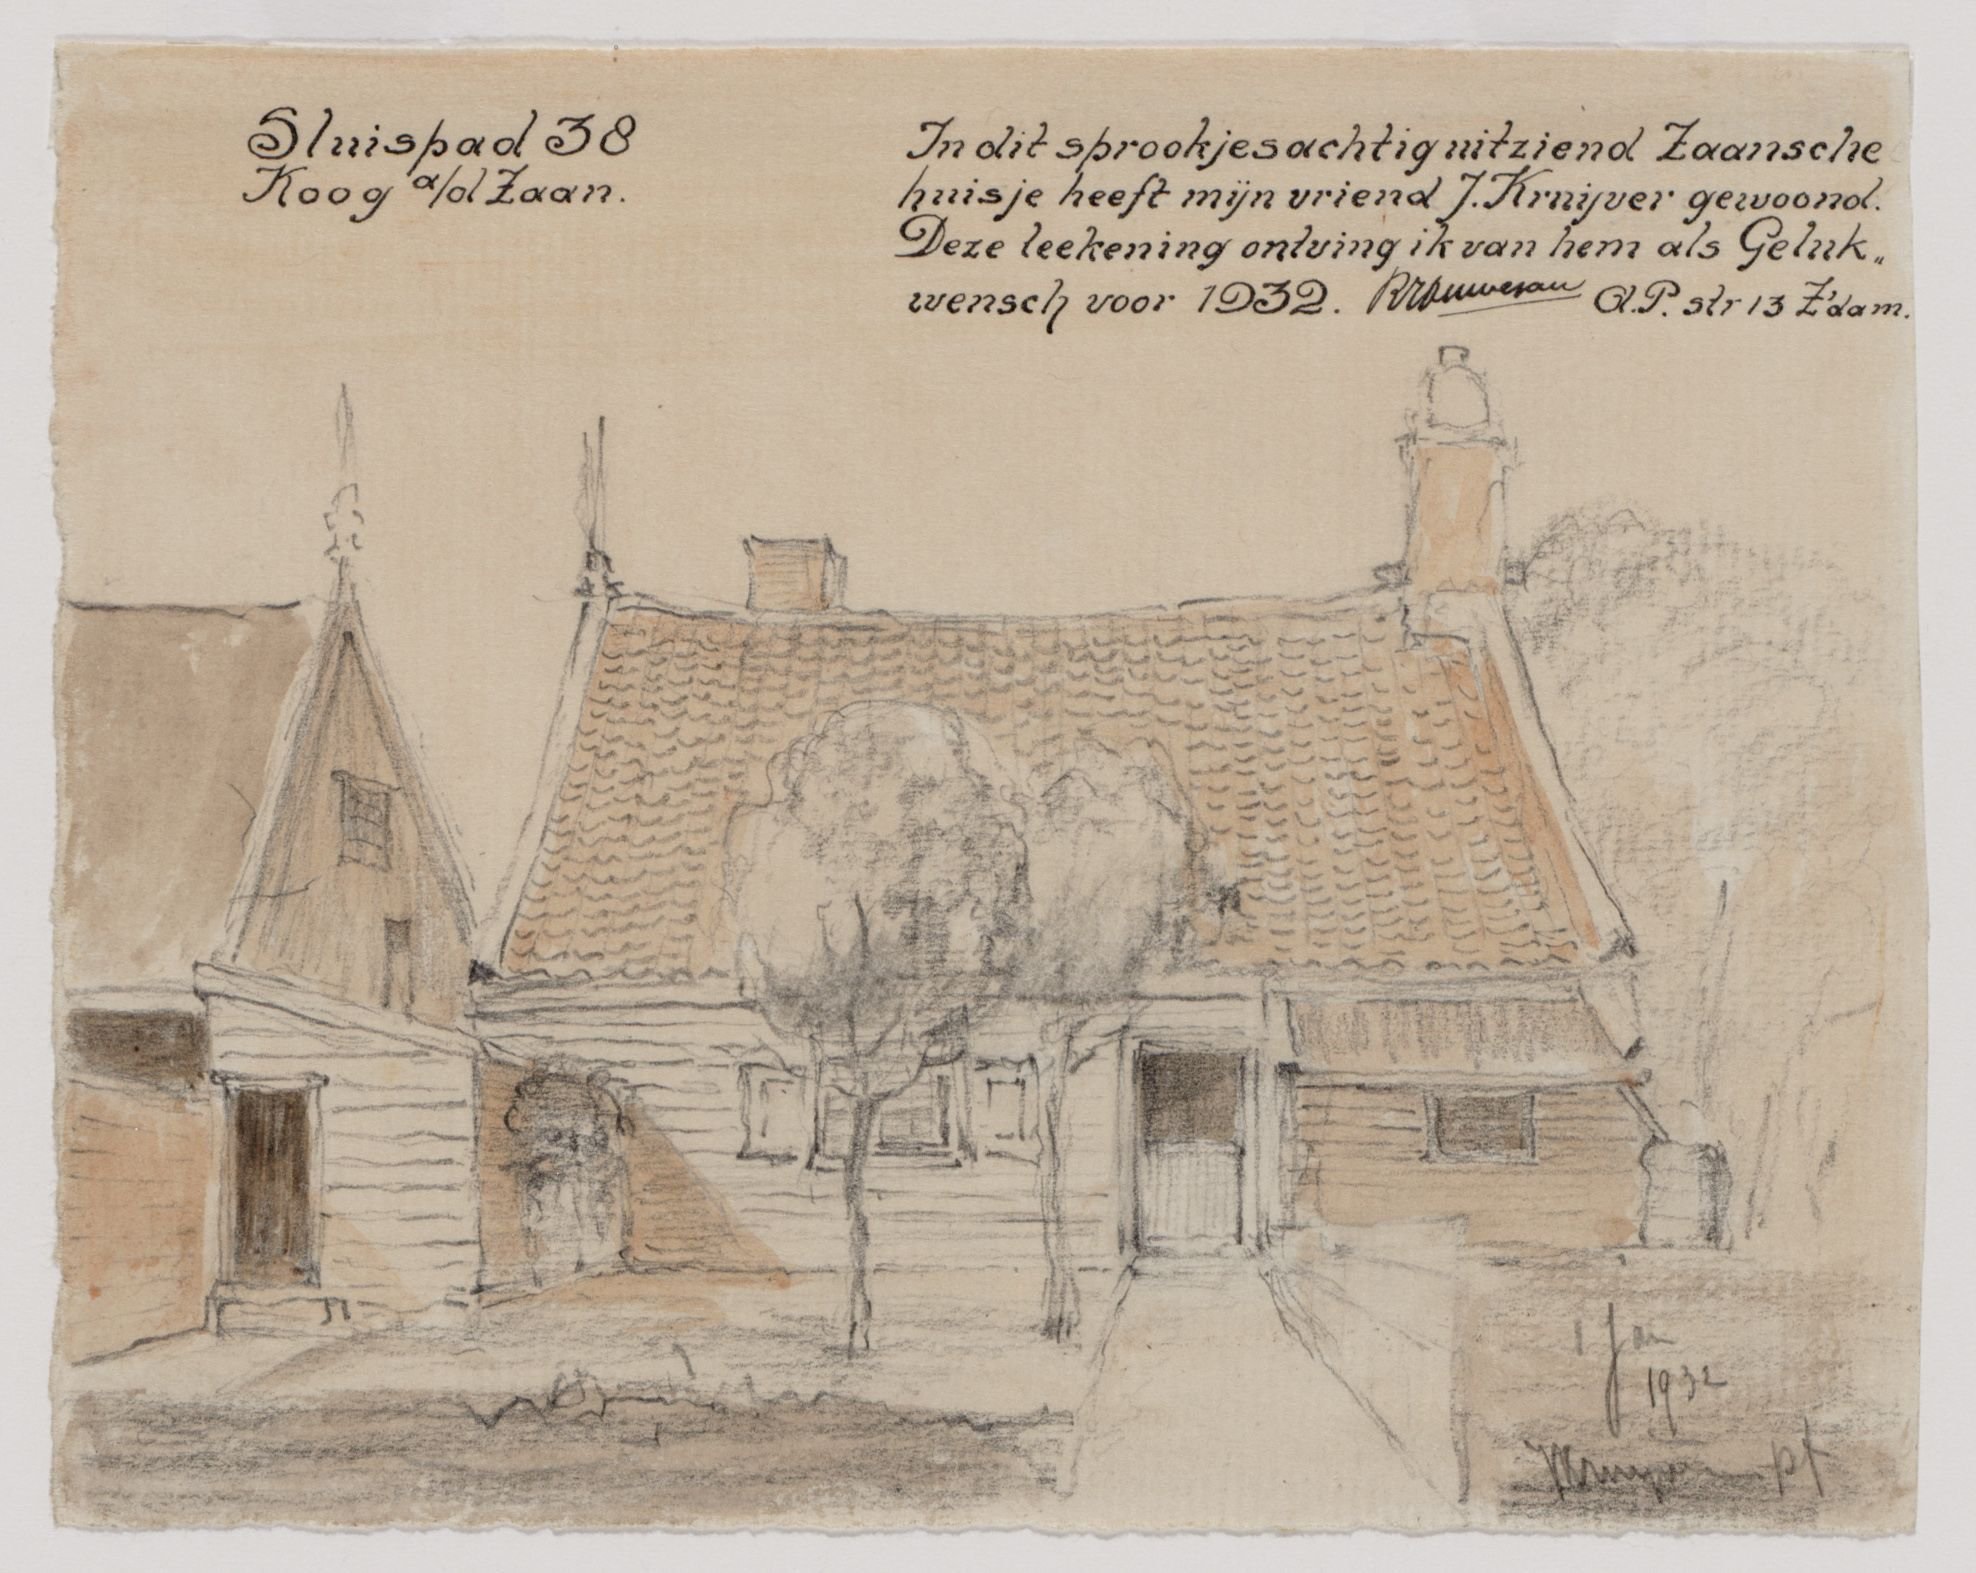 Sluispad 38
Koog a/d Zaan.
In dit sprookjesachtig uitziend Zaansche
huisje heeft mijn vriend J. Kruijver gewoond.
Deze teekening ontving ik van hem als Geluk„
wensch voor 1932. A.P. str 13 Z'dam.
1 Jan
1932
JKruijver pf